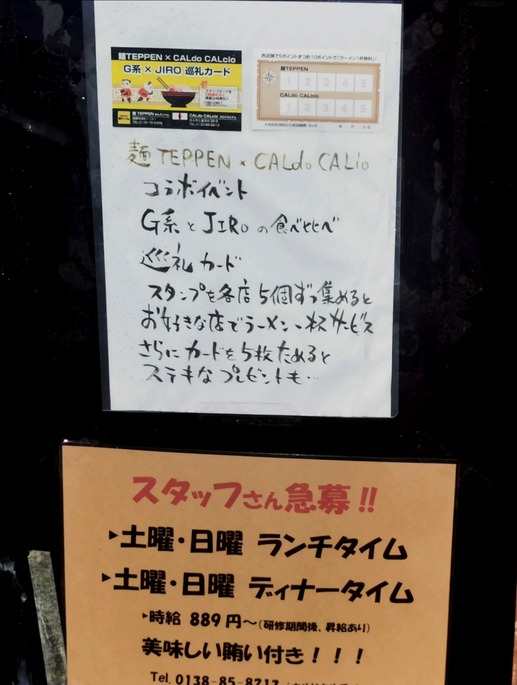 麺TEPPEN × CALdo CALcio
G系 × JIRO 巡礼カード
麺TEPPEN
1 2 3 4 5
CALdo CALcio
1 2 3 4 5
麺 TEPPEN × CALdo CALcio
コラボイベント
G系とJIROの食べ比べ
巡礼カード
スタンプを各店5個ずつ集めると
お好きな店でラーメン一杯サービス
さらにカードを5枚ためると
ステキなプレゼントも…
スタッフさん急募!!
▶土曜・日曜 ランチタイム
▶土曜・日曜 ディナータイム
▶時給 889円～(研修期間後、昇給あり)
美味しい賄い付き！！！
Tel. 0138-85-8717